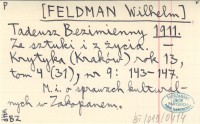 P
P
[FELDMAN Wilhelm]
Tadeusz Bezimienny 1911.
Ze sztuki i z życia. —
Krytyka (Kraków) rok 13,
tom 4 (31), nr 9: 143-147.
M. i. o sprawach kultural-
nych w Zakopanem.
BZ